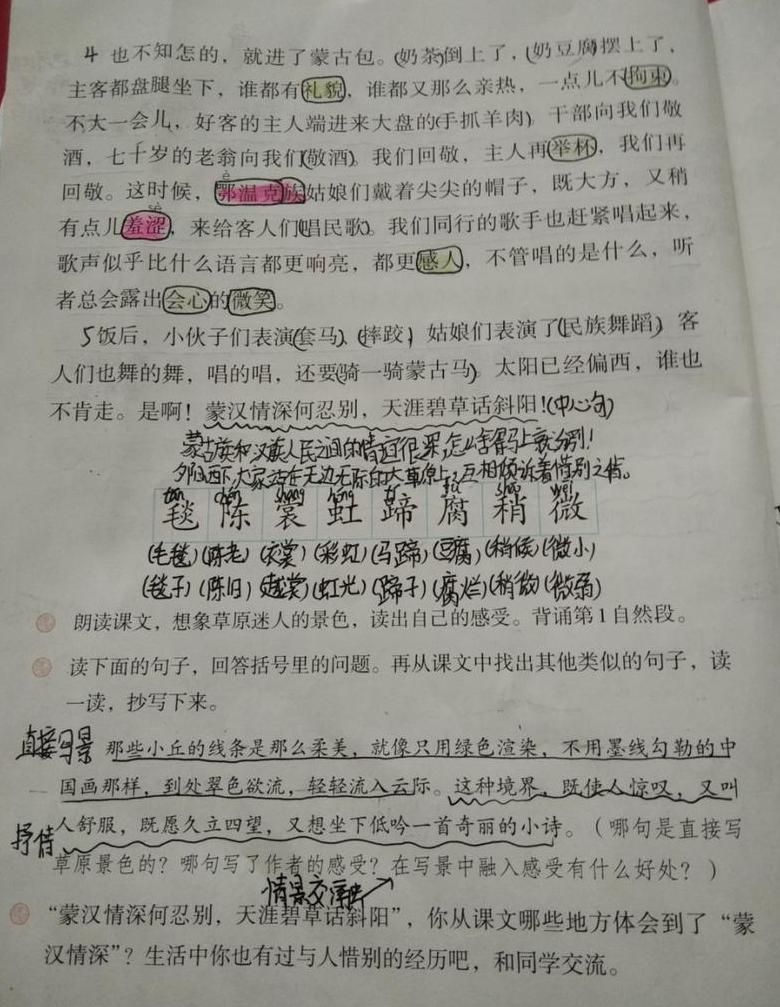 4 也不知怎的，就进了蒙古包。(奶茶)倒上了，(奶豆腐)摆上了，
主客都盘腿坐下，谁都有礼貌，谁都又那么亲热，一点儿不拘束。
不大一会儿，好客的主人端进来大盘的(手抓羊肉)。干部向我们敬
酒，七十岁的老翁向我们(敬酒)。我们回敬，主人再举杯，我们再
è
回敬。这时候，鄂温克族姑娘们戴着尖尖的帽子，既大方，又稍
sè
有点儿羞涩，来给客人们(唱民歌)。我们同行的歌手也赶紧唱起来，
歌声似乎比什么语言都更响亮，都更感人，不管唱的是什么，听
者总会露出会心的微笑。
5 饭后，小伙子们表演(套马)、(摔跤)，姑娘们表演了(民族舞蹈)。客
人们也舞的舞，唱的唱，还要(骑一骑蒙古马)。太阳已经偏西，谁也
不肯走。是啊！蒙汉情深何忍别，天涯碧草话斜阳！(中心句)
蒙古族和汉族人民之间的情谊很深，怎么舍得马上就分别！
夕阳西下，大家站在无边无际的大草原上，互相倾诉着惜别之情。
tǎn chén shang hóng tí fǔ shāo wēi
毯 陈 裳 虹 蹄 腐 稍 微
(毛毯)(陈老)(衣裳)(彩虹)(马蹄)(豆腐)(稍候)(微小)
(毯子)(陈旧)(虹光)(蹄子)(腐烂)(稍微)(微弱)
朗读课文，想象草原迷人的景色，读出自己的感受。背诵第1自然段。
读下面的句子，回答括号里的问题。再从课文中找出其他类似的句子，读
一读，抄写下来。
直接写景
那些小丘的线条是那么柔美，就像只用绿色渲染，不用墨线勾勒的中
国画那样，到处翠色欲流，轻轻流入云际。这种境界，既使人惊叹，又叫
人舒服，既愿久立四望，又想坐下低吟一首奇丽的小诗。（哪句是直接写
抒情
草原景色的？哪句写了作者的感受？在写景中融入感受有什么好处？）
情景交融
“蒙汉情深何忍别，天涯碧草话斜阳”，你从课文哪些地方体会到了“蒙
汉情深”？生活中你也有过与人惜别的经历吧，和同学交流。